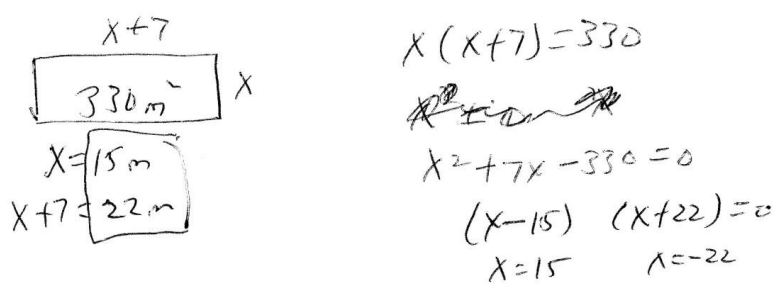 x+7
330 m²
x
x=15m
x+7=22m
x(x+7)=330
x²+7x-330=0
(x-15) (x+22)=0
x=15 x=-22